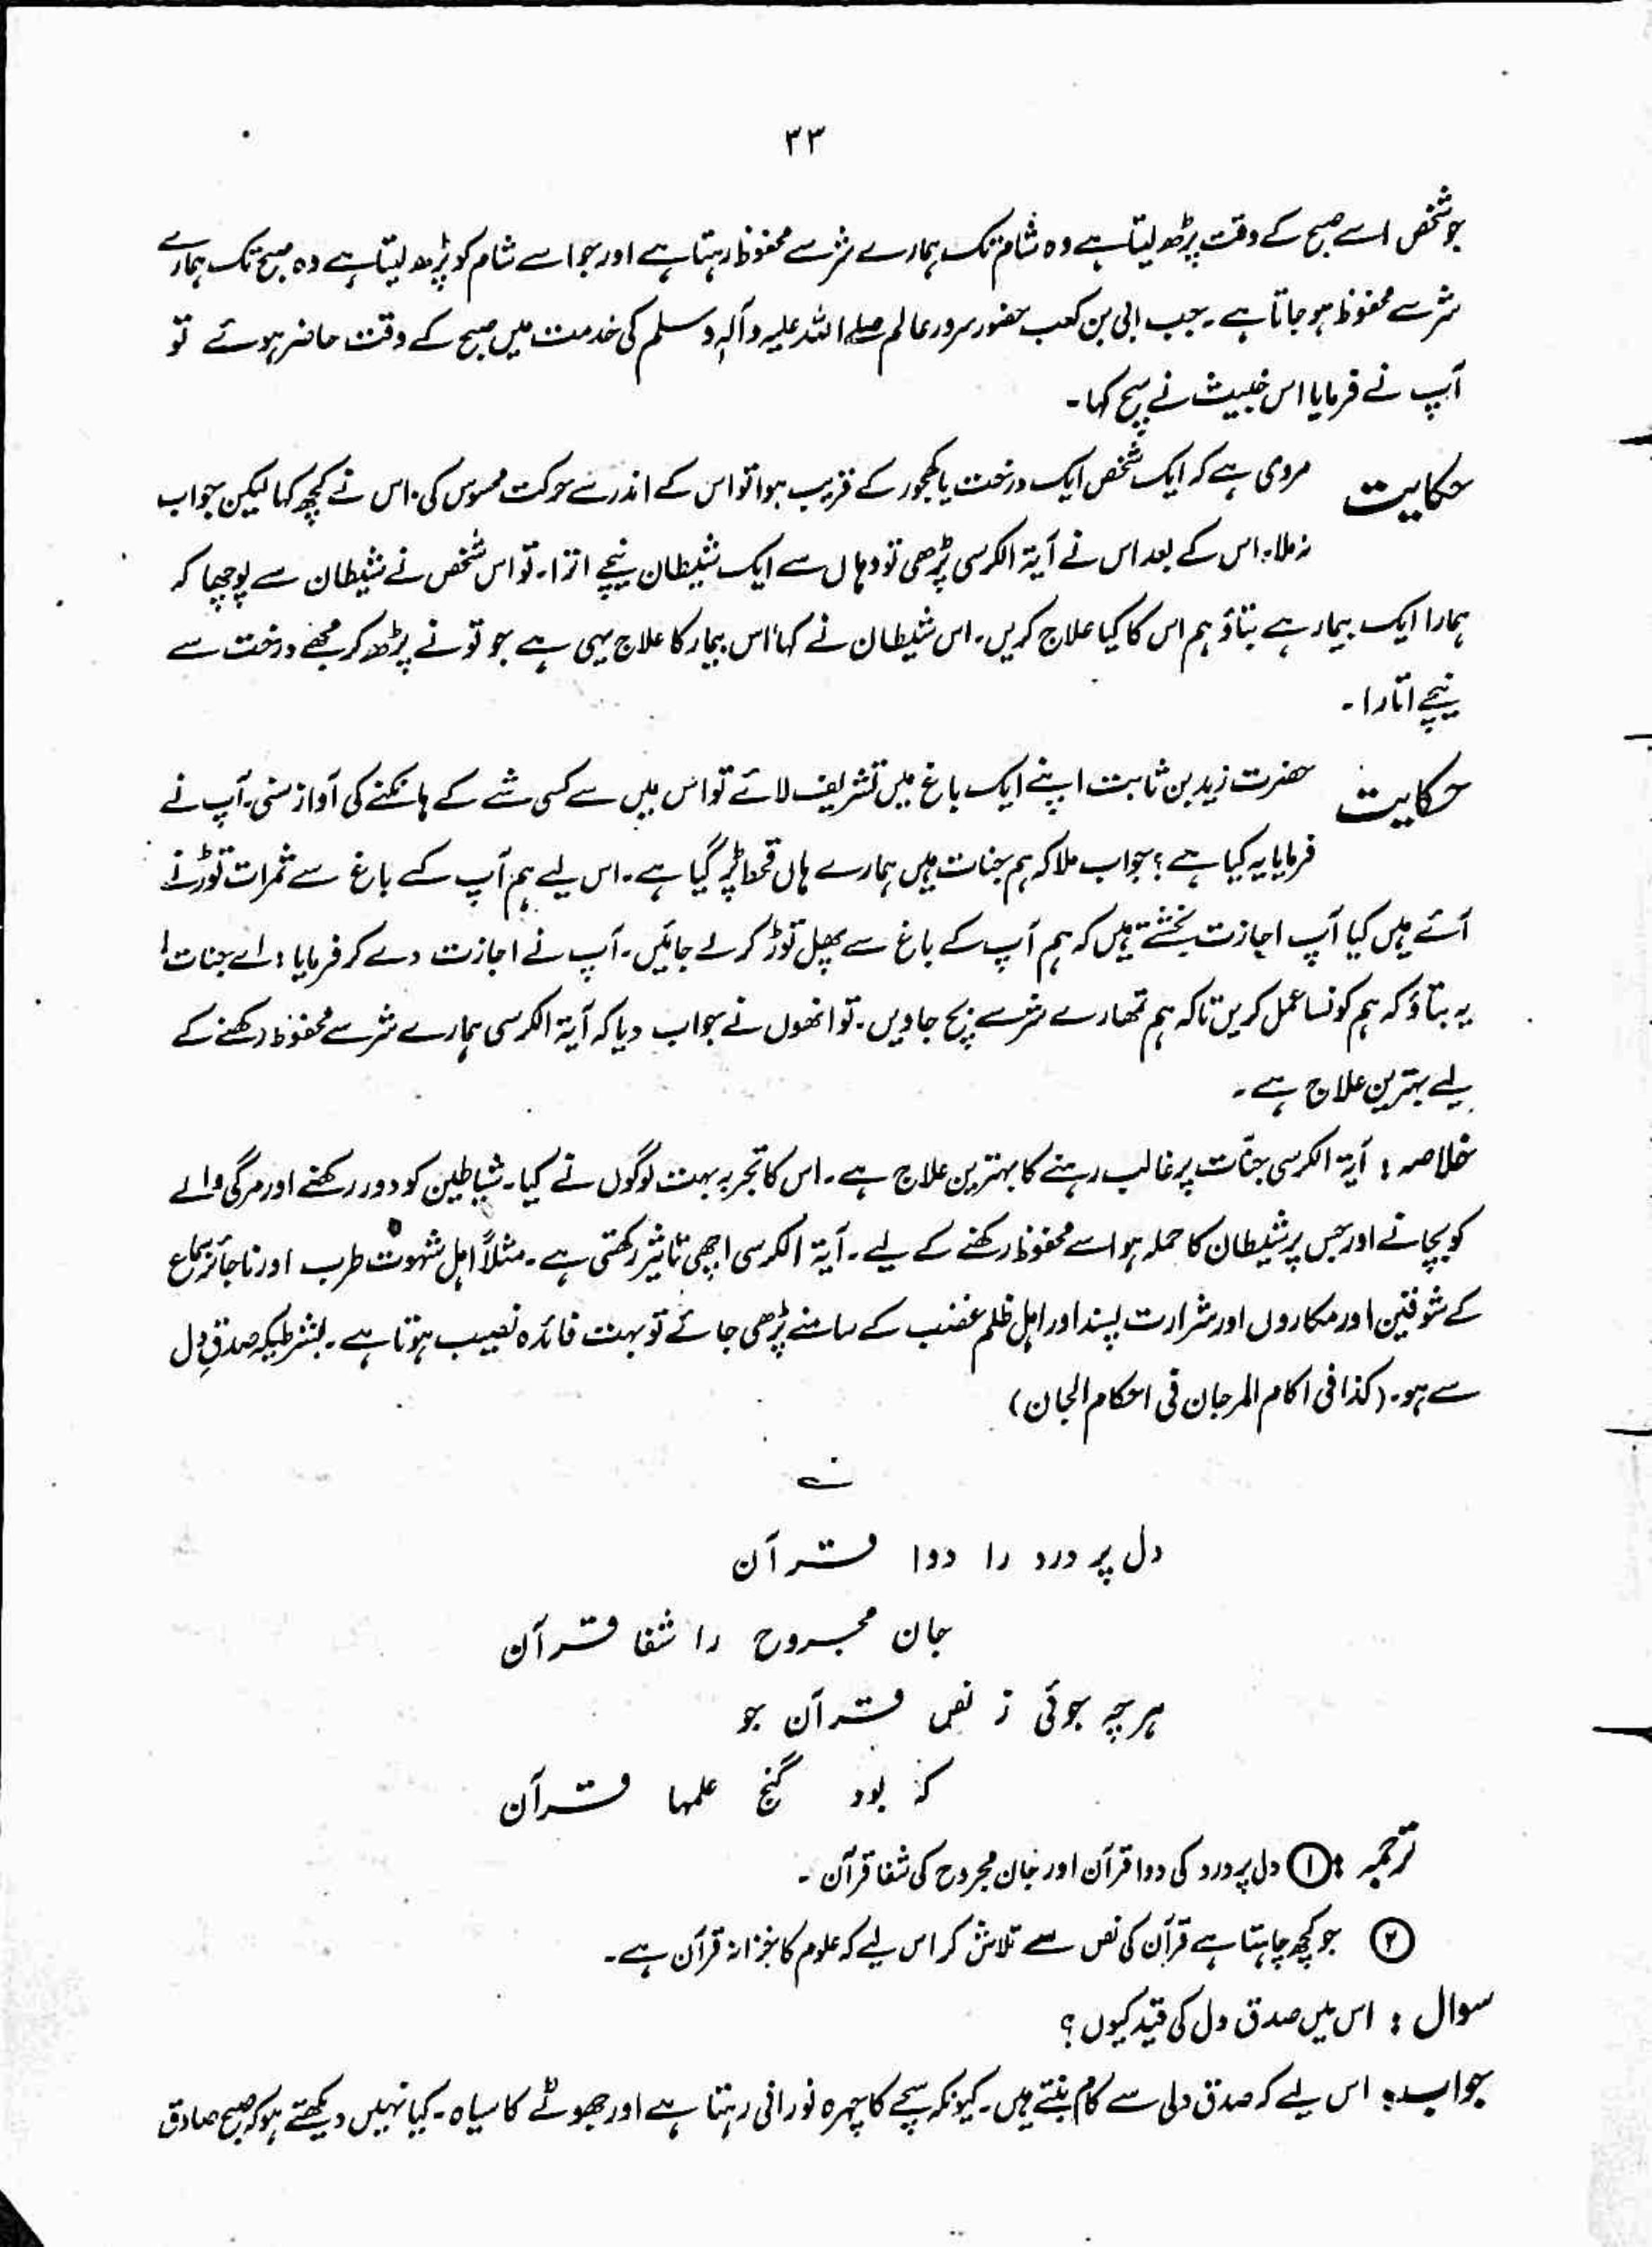 ۳۳
جو شخص اسے صبح کے وقت پڑھ لیتا ہے وہ شام تک ہمارے شر سے محفوظ رہتا ہے اور جو اسے شام کو پڑھ لیتا ہے وہ صبح تک ہمارے
شر سے محفوظ ہو جاتا ہے۔ جب ابی بن کعب حضور سرور عالم صلے اللہ علیہ وآلہٖ وسلم کی خدمت میں صبح کے وقت حاضر ہوئے تو
آپ نے فرمایا اس خبیث نے سچ کہا۔
حکایت مروی ہے کہ ایک شخص ایک درخت یا کھجور کے قریب ہوا تو اس کے اندر سے حرکت محسوس کی۔ اس نے کچھ کہا لیکن جواب
نہ ملا۔ اس کے بعد اس نے آیۃ الکرسی پڑھی تو وہاں سے ایک شیطان نیچے اترا۔ تو اس شخص نے شیطان سے پوچھا کہ
ہمارا ایک بیمار ہے بتاؤ ہم اس کا کیا علاج کریں۔ اس شیطان نے کہا اس بیمار کا علاج یہی ہے جو تو نے پڑھ کر مجھے درخت سے
نیچے اتارا۔
حکایت حضرت زید بن ثابت اپنے ایک باغ میں تشریف لائے تو اس میں سے کسی شے کے ہانکنے کی آواز سنی۔ آپ نے
فرمایا یہ کیا ہے؟ جواب ملا کہ ہم جنات ہیں ہمارے ہاں قحط پڑ گیا ہے۔ اس لیے ہم آپ کے باغ سے ثمرات توڑنے
آئے ہیں کیا آپ اجازت بخشتے ہیں کہ ہم آپ کے باغ سے پھل توڑ کر لے جائیں۔ آپ نے اجازت دے کر فرمایا: اے جنات!
یہ بتاؤ کہ ہم کونسا عمل کریں تاکہ ہم تمھارے شر سے بچ جاویں۔ تو انھوں نے جواب دیا کہ آیۃ الکرسی ہمارے شر سے محفوظ رکھنے کے
لیے بہترین علاج ہے۔
خلاصہ: آیۃ الکرسی جنّات پر غالب رہنے کا بہترین علاج ہے۔ اس کا تجربہ بہت لوگوں نے کیا۔ شیاطین کو دور رکھنے اور مرگی والے
کو بچانے اور جس پر شیطان کا حملہ ہو اسے محفوظ رکھنے کے لیے۔ آیۃ الکرسی اچھی تاثیر رکھتی ہے۔ مثلاً اہل شہوت طرب اور ناجائز سماع
کے شوقین اور مکاروں اور شرارت پسند اور اہل ظلم غضب کے سامنے پڑھی جائے تو بہت فائدہ نصیب ہوتا ہے۔ بشرطیکہ صدقِ دل
سے ہو۔ (کذا فی اکام المرجان فی احکام الجان)
دل پر درد را دوا قرآن
جان مجروح را شفا قرآن
ہرچہ جوئی ز نص قرآن جو
کہ بود گنج علمہا قرآن
ترجمہ: ① دل پر درد کی دوا قرآن اور جان مجروح کی شفا قرآن۔
② جو کچھ چاہتا ہے قرآن کی نص سے تلاش کر اس لیے کہ علوم کا خزانہ قرآن ہے۔
سوال: اس میں صدق دل کی قید کیوں؟
جواب: اس لیے کہ صدق دلی سے کام بنتے ہیں۔ کیونکہ سچے کا چہرہ نورانی رہتا ہے اور جھوٹے کا سیاہ۔ کیا نہیں دیکھتے ہو کہ صبح صادق